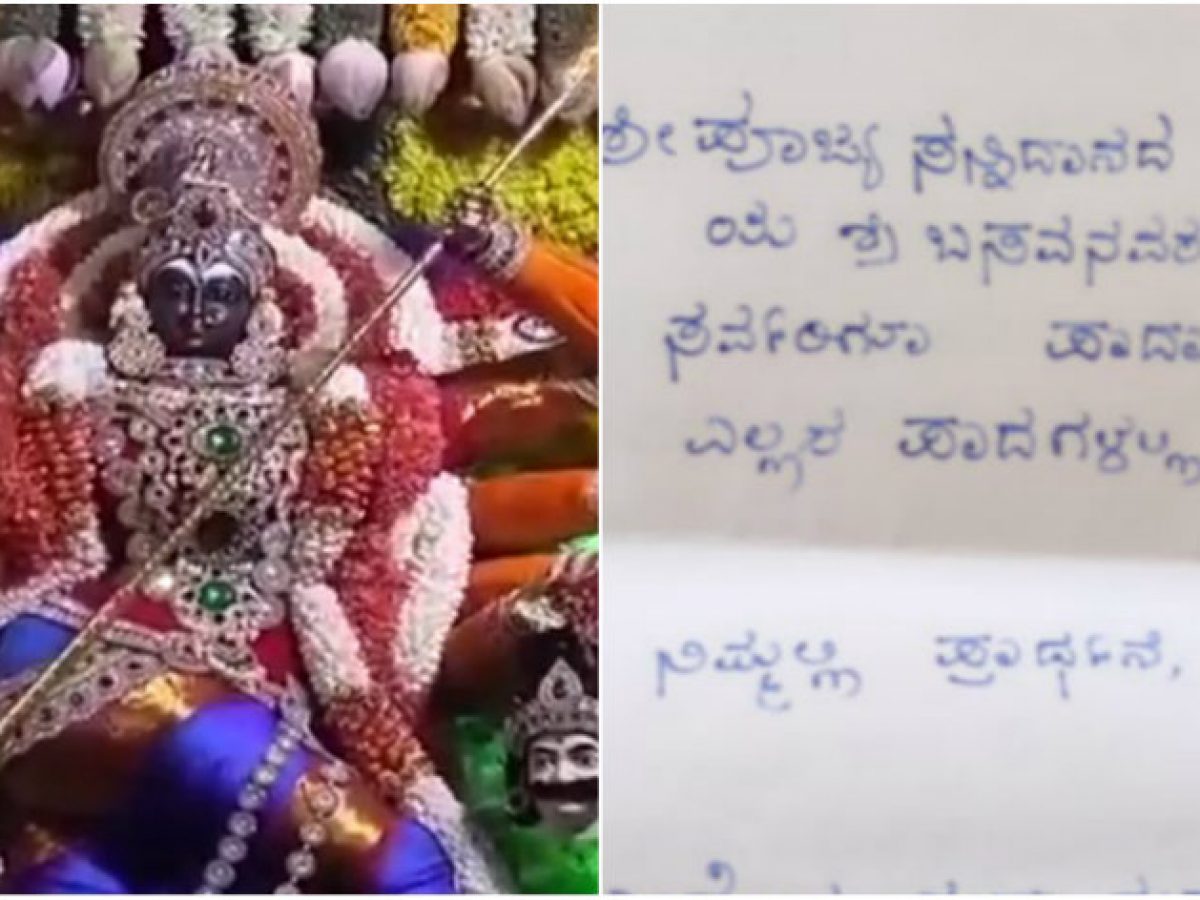 ಶ್ರೀ ಪೂಜ್ಯ ಸನ್ನಿದಾನದ
ಯ ಶ್ರೀ ಬಸವನವರ
ಸರ್ವರಿಗೂ ಪಾದಾ
ಎಲ್ಲರ ಪಾದಗಳಲ್ಲಿ
ನಿಮ್ಮಲ್ಲಿ ಪ್ರಾರ್ಥನೆ,